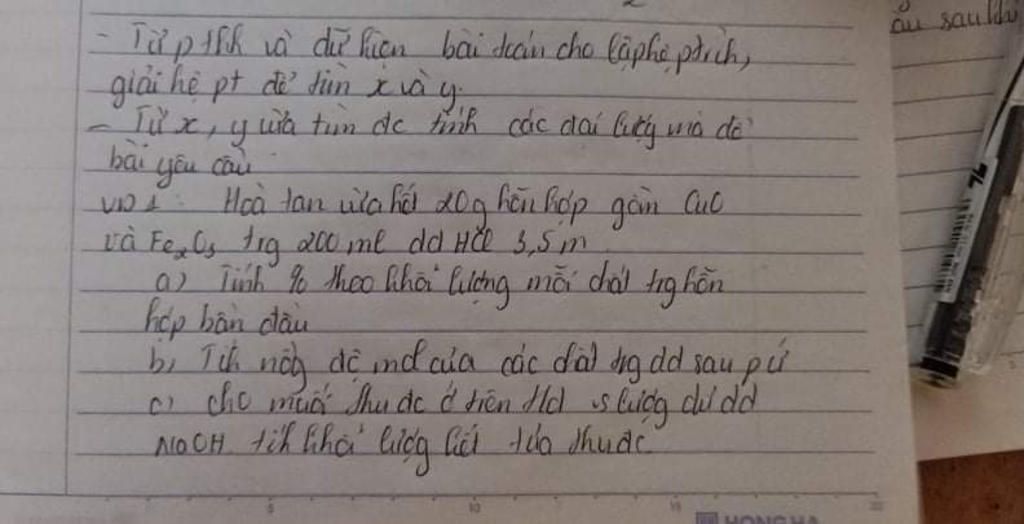 - Từ pthh và dữ kiện bài toán cho lập hệ ptrình,
giải hệ pt để tìm x và y.
- Từ x, y vừa tìm đc tính các đại lượg mà đề
bài yêu cầu
VD1: Hoà tan vừa hết 20g hỗn hợp gồm CuO
và Fe₂O₃ trg 200 ml dd HCl 3,5M
a) Tính % theo khối lượng mỗi chất trg hỗn
hợp ban đầu
b, Tíh nồg độ mol của các chất trg dd sau pứ
c) cho muối thu đc ở trên td vs lượg dư dd
NaOH. tíh khối lượg kết tủa thu đc
ầu sau khi
5 10 15 20
HONG HA